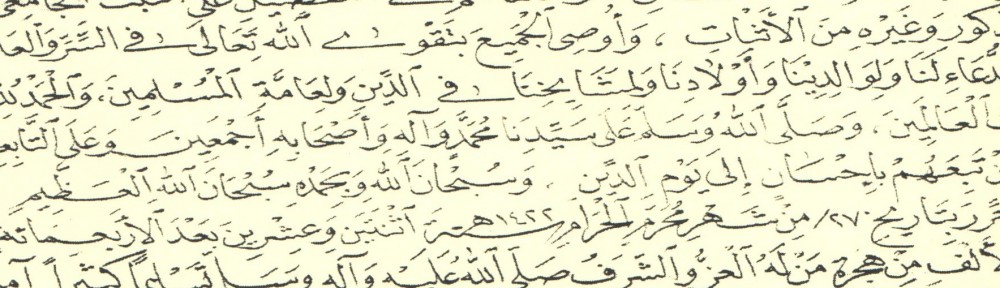 ذكور وغيره من الأثبات ، وأوصى الجميع بتقوى الله تعالى في السر والعلـ
الدعاء لنا ولوالدينا وأولادنا ولمشايخنا في الدين ولعامة المسلمين، والحمد لله
العالمين ، وصلى الله وسلم على سيدنا محمد وآله وأصحابه أجمعين وعلى التابعـ
تبعهم بإحسان إلى يوم الدين ، وسبحان الله وبحمده سبحان الله العظيم
حرر بتاريخ ٢٧/ من شهر محرم الحرام سنة ١٤٢٢ هـ اثنتين وعشرين بعد الأربعمائة
ألف من هجرة من له العز والشرف صلى الله عليه وآله وسلم تسليما كثيرا